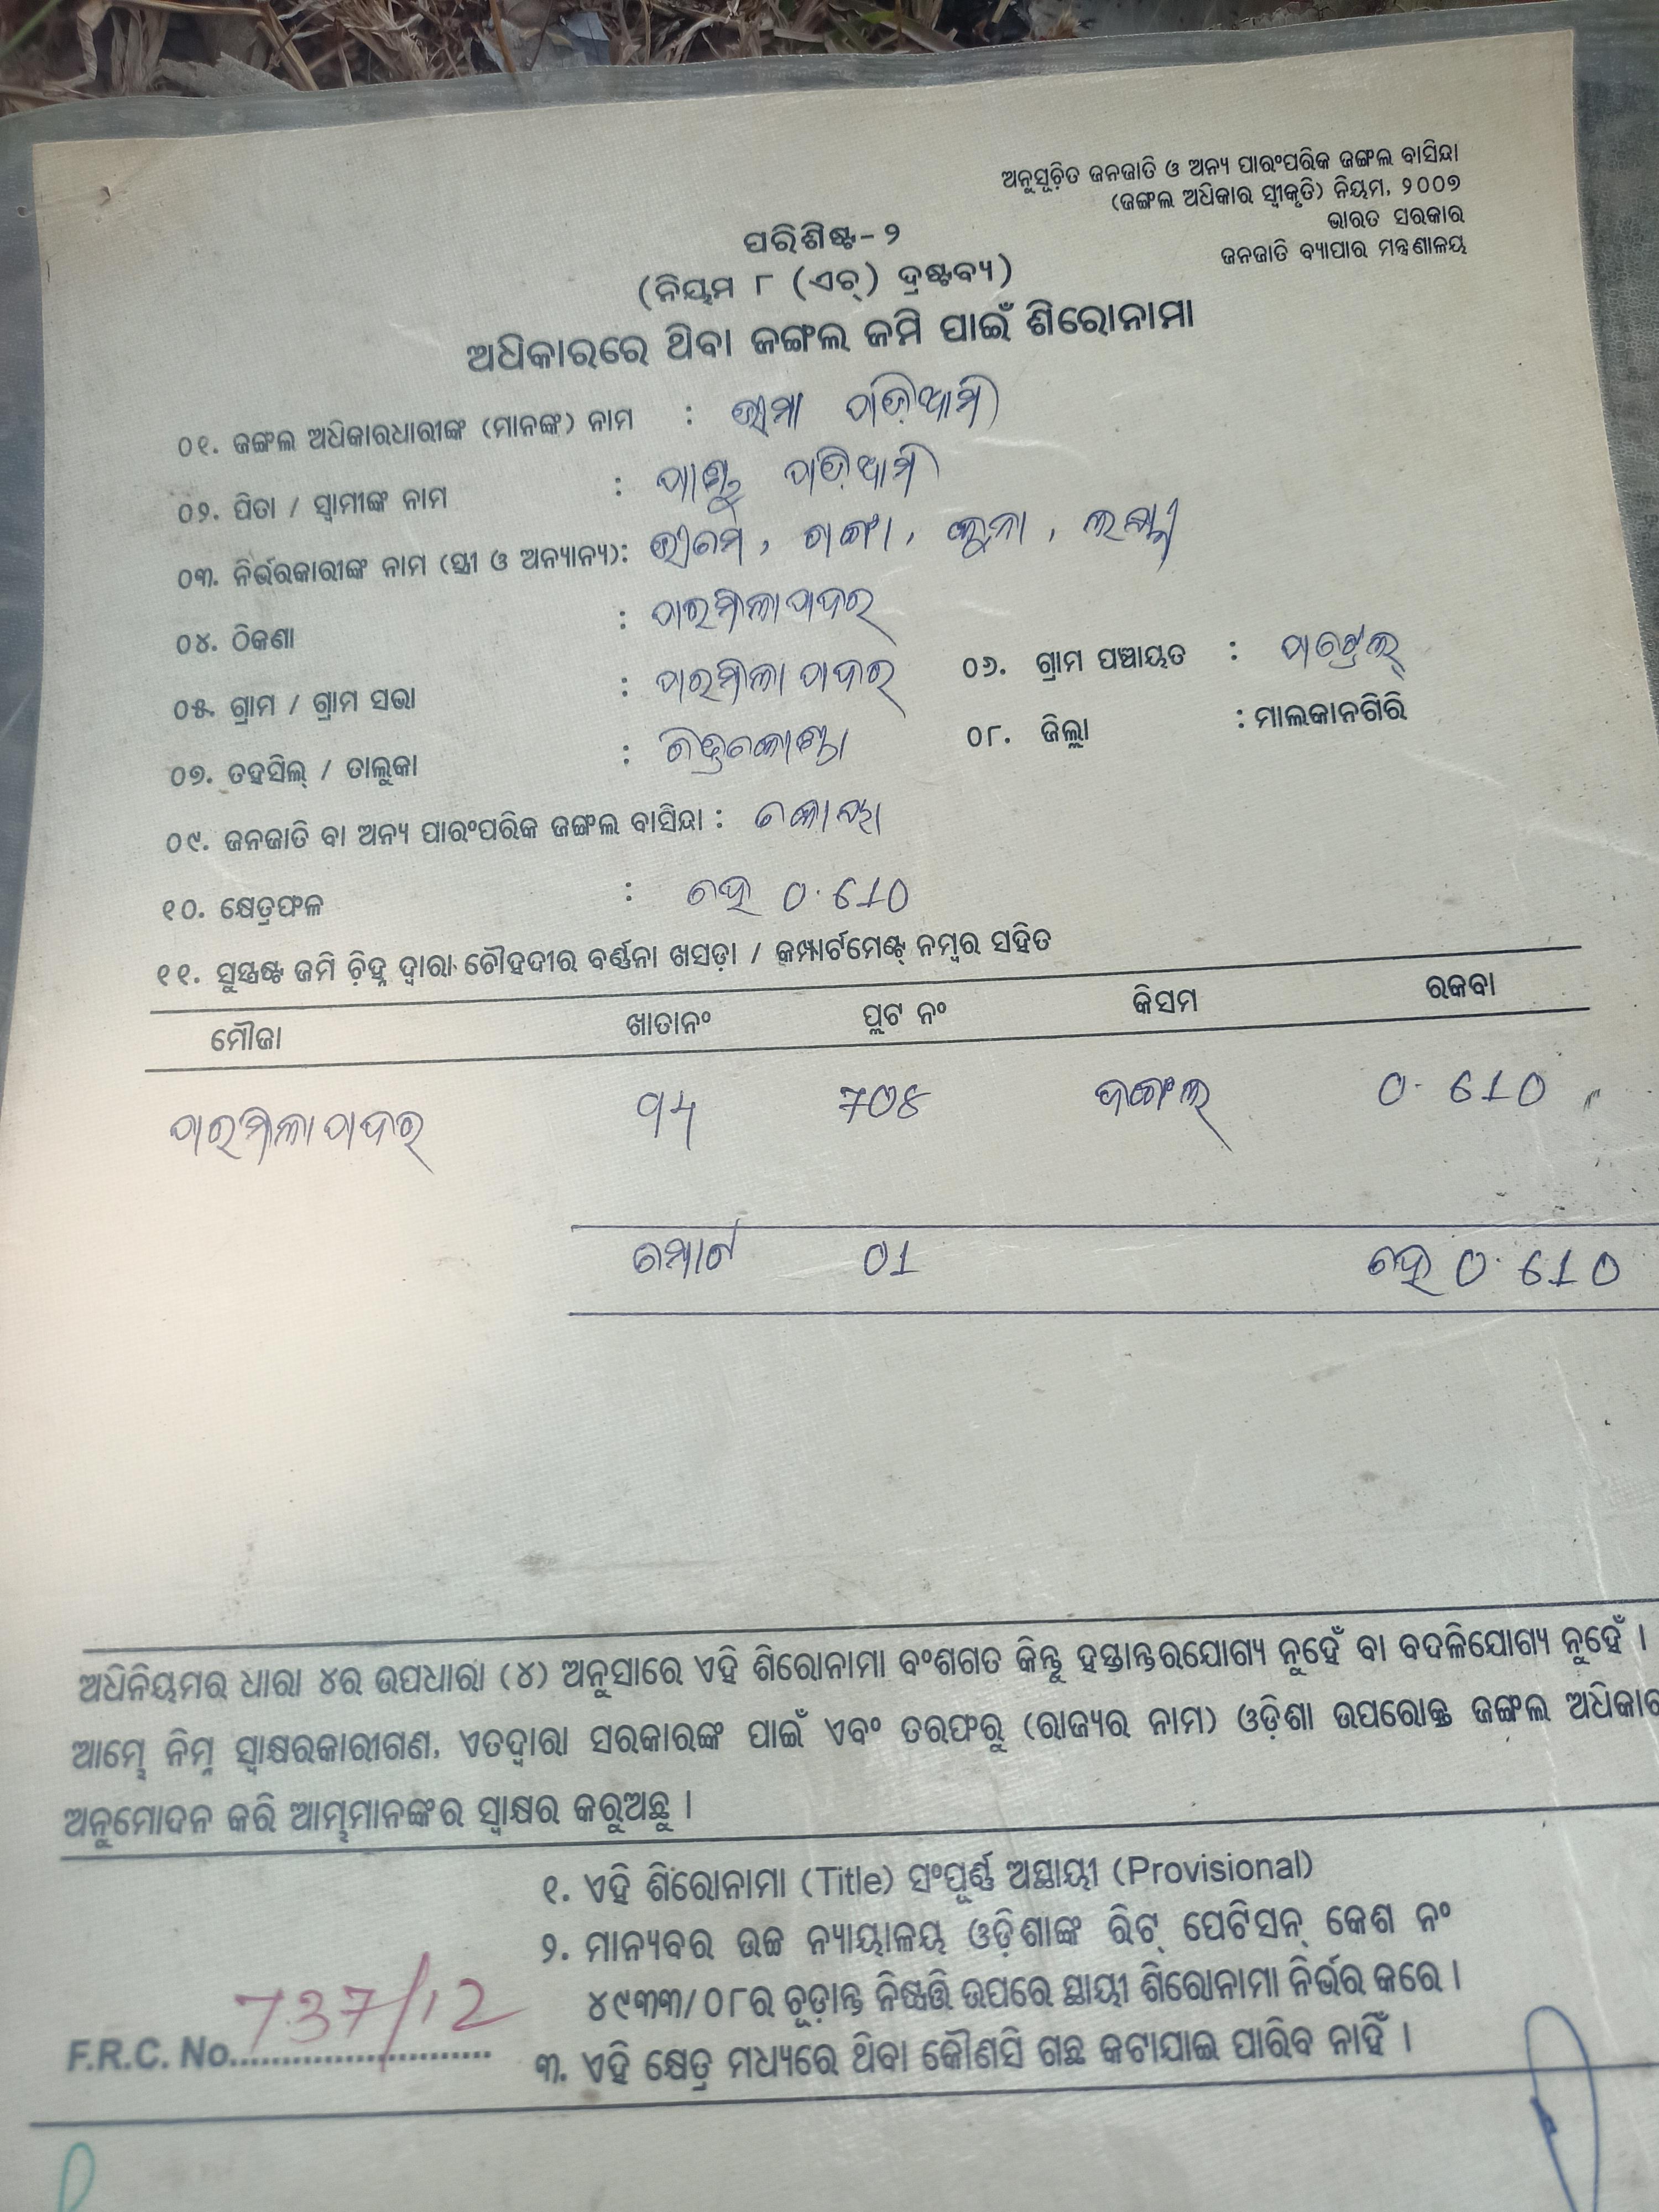 ଅନୁସୂଚିତ ଜନଜାତି ଓ ଅନ୍ୟ ପାରଂପରିକ ଜଙ୍ଗଲ ବାସିନ୍ଦା
(ଜଙ୍ଗଲ ଅଧିକାର ସ୍ୱୀକୃତି) ନିୟମ, ୨୦୦୭
ଭାରତ ସରକାର
ଜନଜାତି ବ୍ୟାପାର ମନ୍ତ୍ରଣାଳୟ
ପରିଶିଷ୍ଟ-୨
(ନିୟମ ୮ (ଏଚ୍) ଦ୍ରଷ୍ଟବ୍ୟ)
ଅଧିକାରରେ ଥିବା ଜଙ୍ଗଲ ଜମି ପାଇଁ ଶିରୋନାମା
୦୧. ଜଙ୍ଗଲ ଅଧିକାରଧାରୀଙ୍କ (ମାନଙ୍କ) ନାମ : ଭୀମା ପଡ଼ିଆମି
୦୨. ପିତା / ସ୍ୱାମୀଙ୍କ ନାମ : ପାଣ୍ଡୁ ପଡ଼ିଆମି
୦୩. ନିର୍ଭରକାରୀଙ୍କ ନାମ (ସ୍ତ୍ରୀ ଓ ଅନ୍ୟାନ୍ୟ): ଭୀମେ, ଗଙ୍ଗା,
୦୪. ଠିକଣା : ପାଇମାଲାପାଦର
୦୫. ଗ୍ରାମ / ଗ୍ରାମ ସଭା : ପାଇମାଲାପାଦର ୦୬. ଗ୍ରାମ ପଞ୍ଚାୟତ :
୦୭. ତହସିଲ୍ / ତାଲୁକା : ଚିତ୍ରକୋଣ୍ଡା ୦୮. ଜିଲ୍ଲା : ମାଲକାନଗିରି
୦୯. ଜନଜାତି ବା ଅନ୍ୟ ପାରଂପରିକ ଜଙ୍ଗଲ ବାସିନ୍ଦା : କୋୟା
୧୦. କ୍ଷେତ୍ରଫଳ : ହେ 0.610
୧୧. ସୁସ୍ପଷ୍ଟ ଜମି ଚିହ୍ନ ଦ୍ୱାରା ଚୌହଦୀର ବର୍ଣ୍ଣନା ଖସଡ଼ା / କମ୍ପାର୍ଟମେଣ୍ଟ୍ ନମ୍ବର ସହିତ
ମୌଜା ଖାତାନଂ ପ୍ଲଟ ନଂ କିସମ ରକବା
ପାଇମାଲାପାଦର 708 ଜଙ୍ଗଲ 0.610
ମୋଟ 01 ହେ 0.610
ଅଧିନିୟମର ଧାରା ୪ର ଉପଧାରା (୪) ଅନୁସାରେ ଏହି ଶିରୋନାମା ବଂଶଗତ କିନ୍ତୁ ହସ୍ତାନ୍ତରଯୋଗ୍ୟ ନୁହେଁ ବା ବଦଳିଯୋଗ୍ୟ ନୁହେଁ ।
ଆମ୍ଭେ ନିମ୍ନ ସ୍ୱାକ୍ଷରକାରୀଗଣ, ଏତଦ୍ୱାରା ସରକାରଙ୍କ ପାଇଁ ଏବଂ ତରଫରୁ (ରାଜ୍ୟର ନାମ) ଓଡ଼ିଶା ଉପରୋକ୍ତ ଜଙ୍ଗଲ ଅଧିକାର
ଅନୁମୋଦନ କରି ଆମ୍ଭମାନଙ୍କର ସ୍ୱାକ୍ଷର କରୁଅଛୁ ।
୧. ଏହି ଶିରୋନାମା (Title) ସଂପୂର୍ଣ୍ଣ ଅସ୍ଥାୟୀ (Provisional)
୨. ମାନ୍ୟବର ଉଚ୍ଚ ନ୍ୟାୟାଳୟ ଓଡ଼ିଶାଙ୍କ ରିଟ୍ ପେଟିସନ୍ କେଶ ନଂ
୪୯୩୩/୦୮ର ଚୂଡ଼ାନ୍ତ ନିଷ୍ପତ୍ତି ଉପରେ ସ୍ଥାୟୀ ଶିରୋନାମା ନିର୍ଭର କରେ ।
F.R.C. No. 737/12
୩. ଏହି କ୍ଷେତ୍ର ମଧ୍ୟରେ ଥିବା କୌଣସି ଗଛ କଟାଯାଇ ପାରିବ ନାହିଁ ।